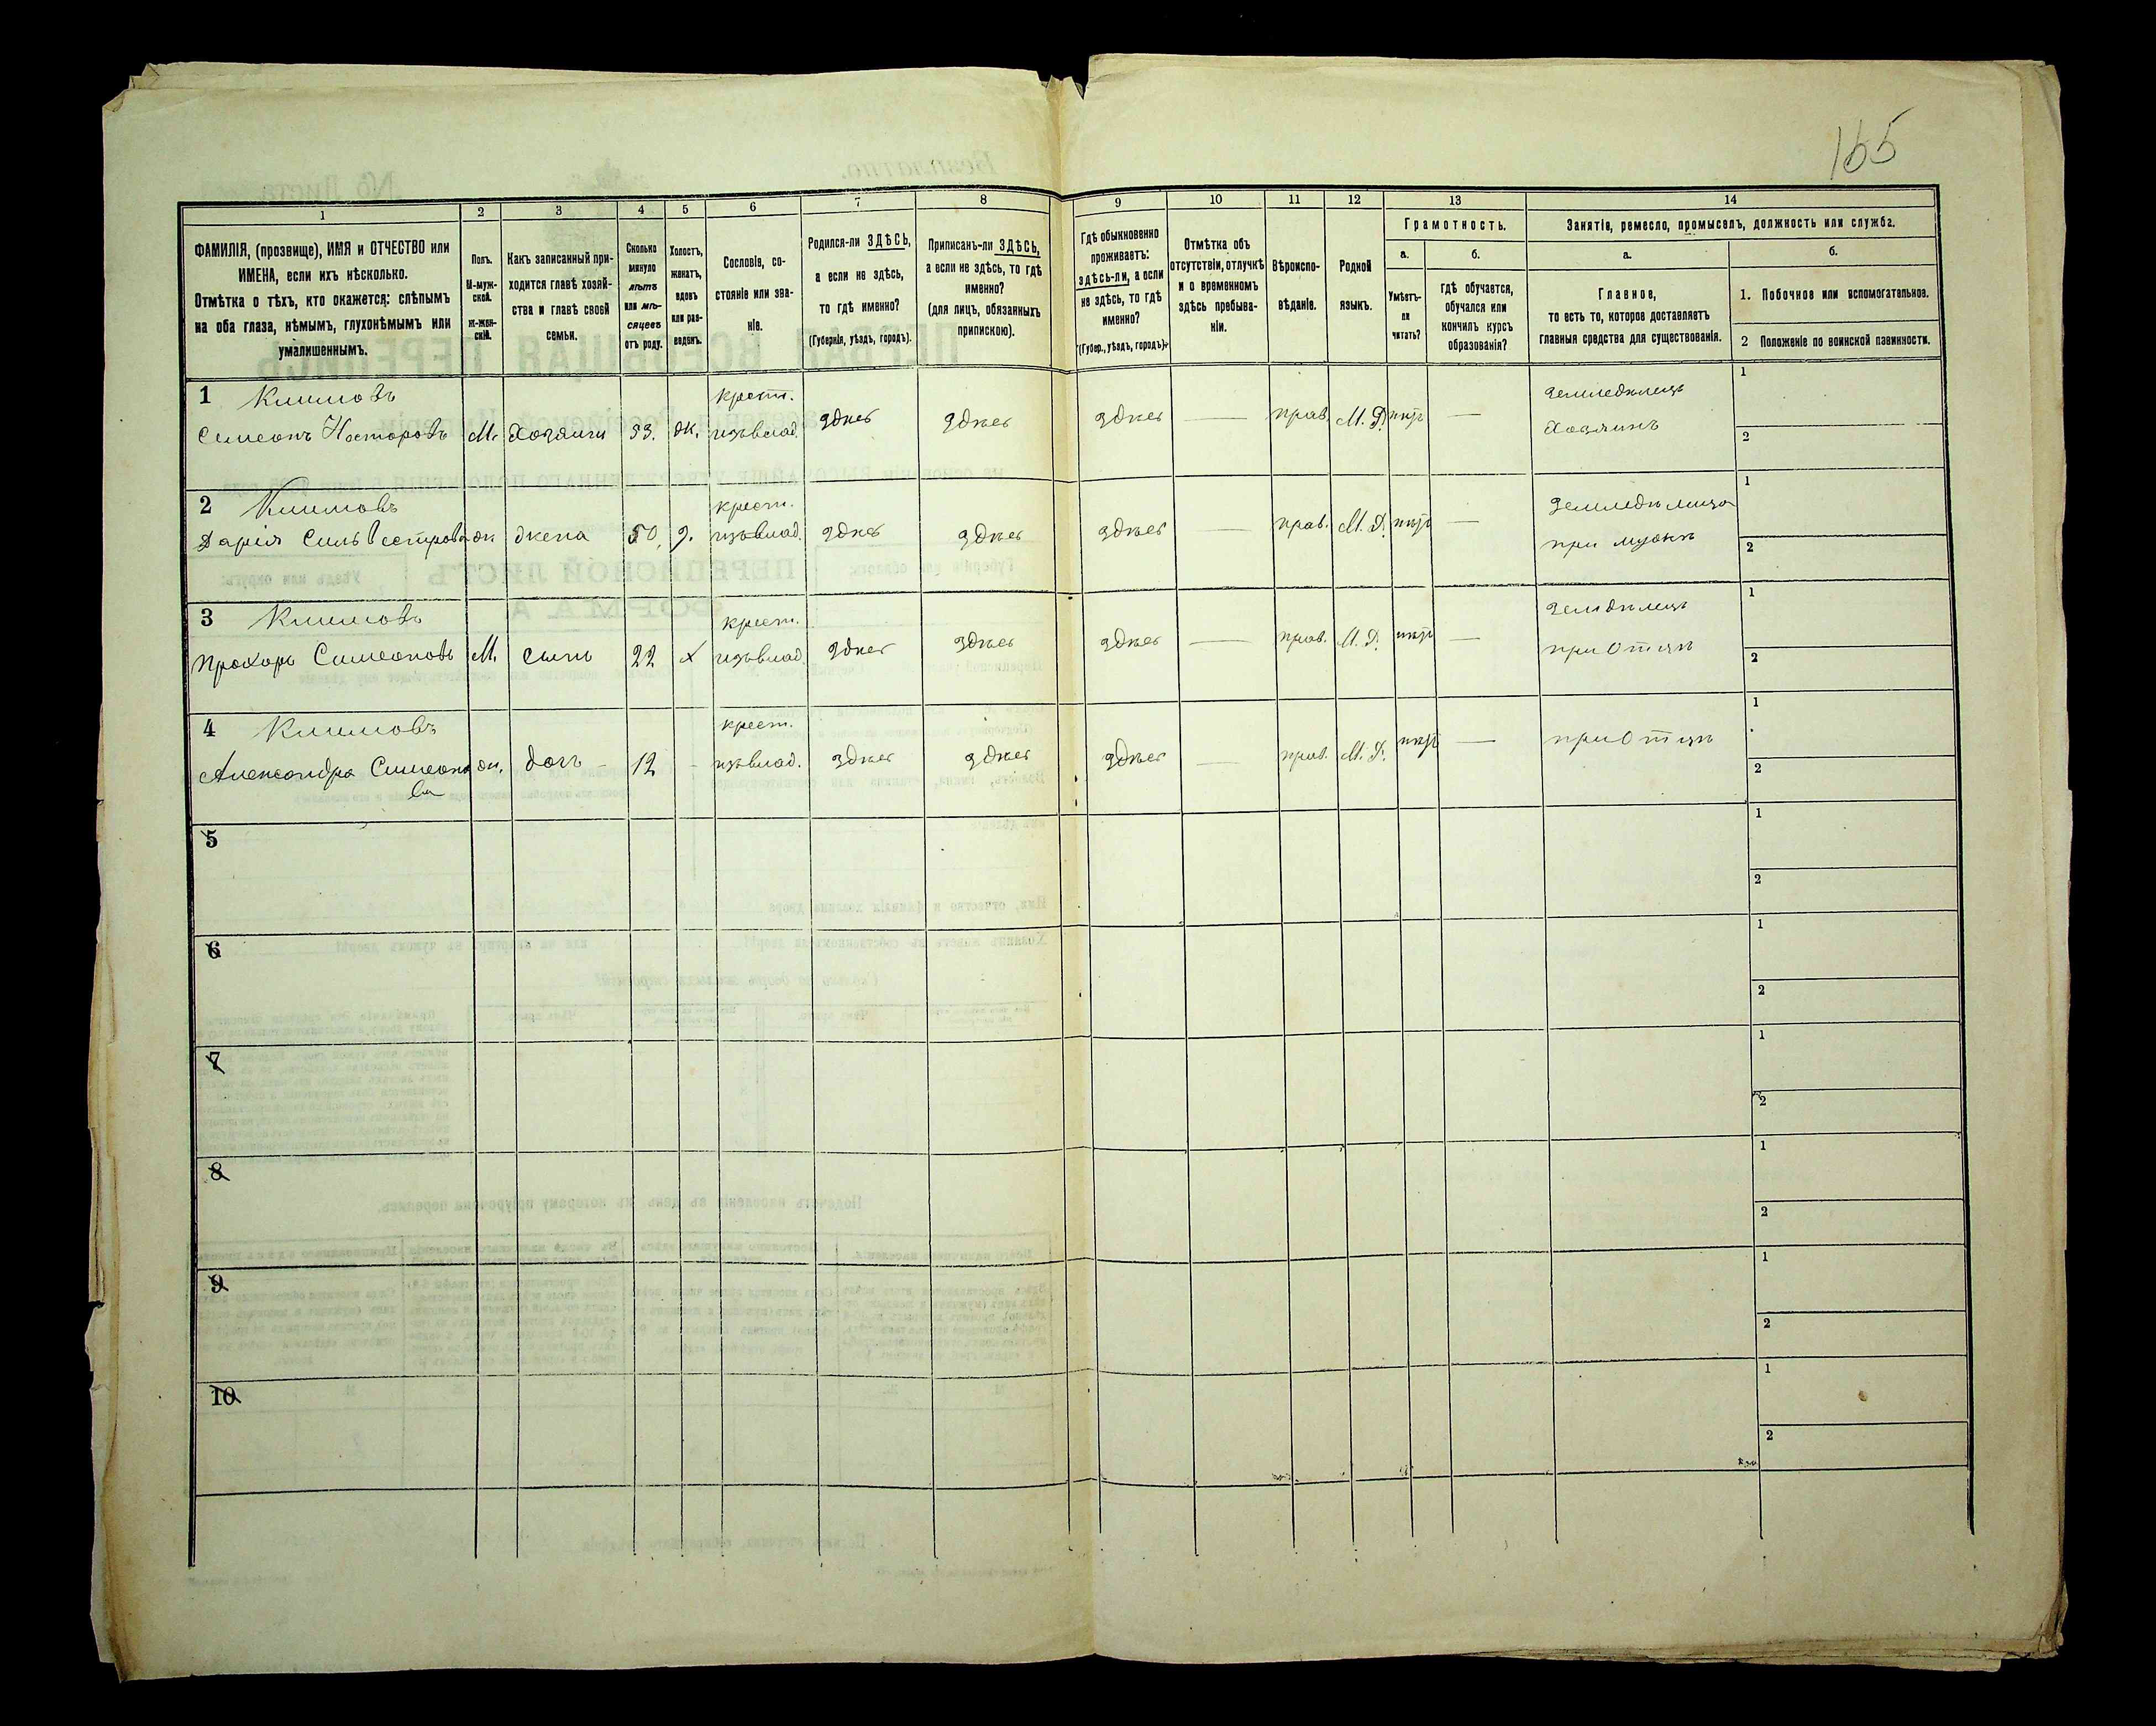 165
1 2 3 4 5 6 7 8 9 10 11 12 13 14
ФАМИЛІЯ, (прозвище), ИМЯ и ОТЧЕСТВО или
ИМЕНА, если ихъ нѣсколько.
Отмѣтка о тѣхъ, кто окажется: слѣпымъ
на оба глаза, нѣмымъ, глухонѣмымъ или
умалишеннымъ.
Полъ.
М-муж-
ской.
ж-жен-
скій.
Какъ записанный при-
ходится главѣ хозяй-
ства и главѣ своей
семьи.
Сколько
минуло
лѣтъ
или мѣ-
сяцевъ
отъ роду.
Холостъ,
женатъ,
вдовъ
или раз-
веденъ.
Сословіе, со-
стояніе или зва-
ніе.
Родился-ли ЗДѢСЬ,
а если не здѣсь,
то гдѣ именно?
(Губернія, уѣздъ, городъ).
Приписанъ-ли ЗДѢСЬ,
а если не здѣсь, то гдѣ
именно?
(для лицъ, обязанныхъ
припискою).
Гдѣ обыкновенно
проживаетъ:
здѣсь-ли, а если
не здѣсь, то гдѣ
именно?
(Губер., уѣздъ, городъ).
Отмѣтка объ
отсутствіи, отлучкѣ
и о временномъ
здѣсь пребыва-
ніи.
Вѣроиспо-
вѣданіе.
Родной
языкъ.
Грамотность.
а.
Умѣетъ-
ли
читать?
б.
гдѣ обучается,
обучался или
кончилъ курсъ
образованія?
Занятіе, ремесло, промыселъ, должность или служба.
а.
Главное,
то есть то, которое доставляетъ
главныя средства для существованія.
б.
1. Побочное или вспомогательное.
2 Положеніе по воинской повинности.
1 Климовъ крест. земледѣлецъ 1
Симеонъ Несторовъ М. Хозяинъ 53. ж. изъ влад. здѣсь здѣсь здѣсь — прав. М. Р. нѣтъ — Хозяинъ 2
2 Климовъ крест. земледѣлица 1
Дарія Сильвестрова ж жена 50. з. изъ влад. здѣсь здѣсь здѣсь — прав. М. Р. нѣтъ — при мужѣ 2
3 Климовъ крест. земдѣлецъ 1
Прохоръ Симеоновъ М. сынъ 22 х изъ влад. здѣсь здѣсь здѣсь — прав. М. Р. нѣтъ — при Отцѣ 2
4 Климовъ крест. 1
Александра Симеоно ж. дочь - 12 - изъ влад. здѣсь здѣсь здѣсь — прав. М. Р. нѣтъ — при Отцѣ 2
ва
5 1
2
6 1
2
7 1
2
8 1
2
9 1
2
10 1
2